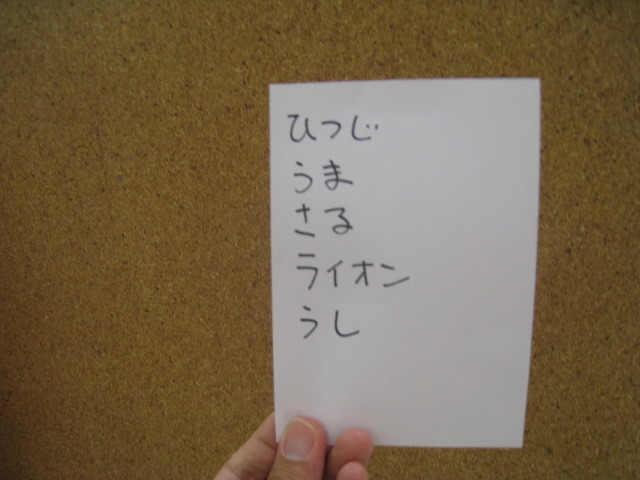 ひつじ
うま
さる
ライオン
うし